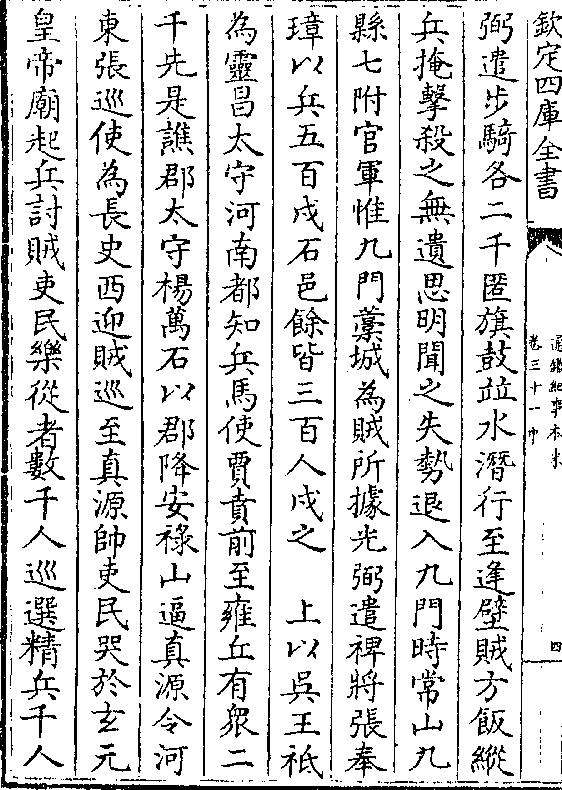 欽定四庫全書
通鑑紀事本末
卷三十一中
四
弼遣步騎各二千匿旗鼓竝水潛行至逢壁賊方飯縱
兵掩擊殺之無遺思明聞之失勢退入九門時常山九
縣七附官軍惟九門藁城為賊所據光弼遣裨將張奉
璋以兵五百戍石邑餘皆三百人戍之　上以吳王祗
為靈昌太守河南都知兵馬使賈賁前至雍丘有衆二
千先是譙郡太守楊萬石以郡降安祿山逼真源令河
東張巡使為長史西迎賊巡至真源帥吏民哭於玄元
皇帝廟起兵討賊吏民樂從者數千人巡選精兵千人